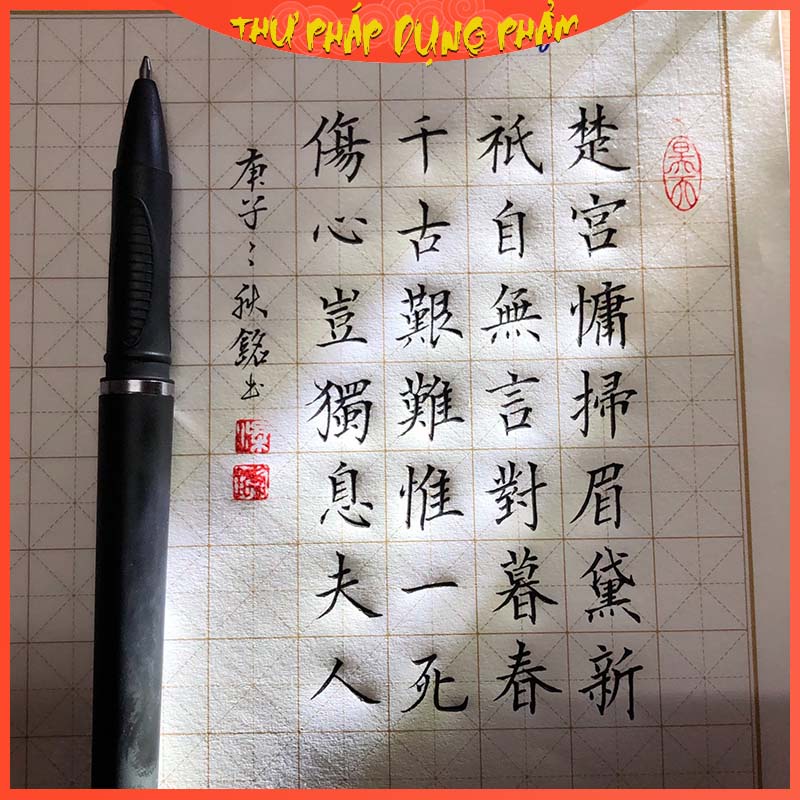 THƯ PHÁP DỤNG PHẨM
楚宮慵掃眉黛新
祇自無言對暮春
千古艱難惟一死
傷心豈獨息夫人
庚子之秋銘书